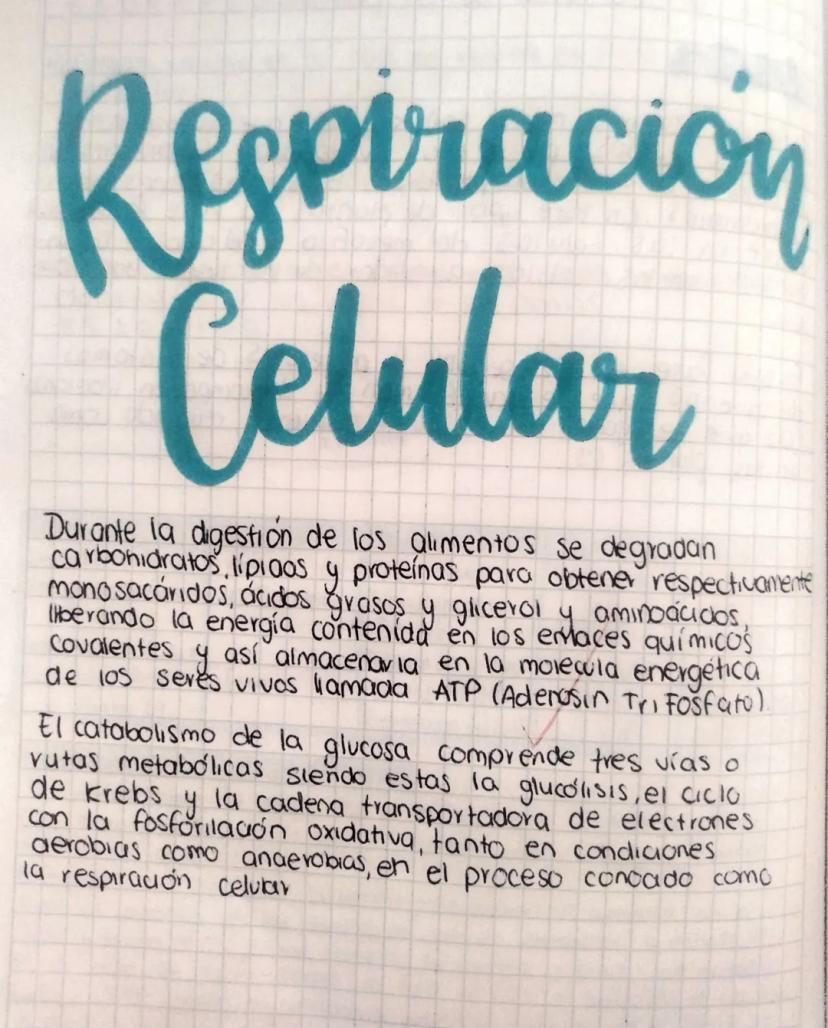 Respiración
Celular
Durante la digestión de los alimentos se degradan
carbohidratos, lípidos y proteínas para obtener respectivamente
monosacáridos, ácidos grasos y glicerol y aminoácidos,
liberando la energía contenida en los enlaces químicos
covalentes y así almacenarla en la molécula energética
de los seres vivos llamada ATP (Adenosin Tri Fosfato).
El catabolismo de la glucosa comprende tres vías o
rutas metabólicas siendo estas la glucólisis, el ciclo
de Krebs y la cadena transportadora de electrones
con la fosforilación oxidativa, tanto en condiciones
aerobias como anaerobias, en el proceso conocido como
la respiración celular